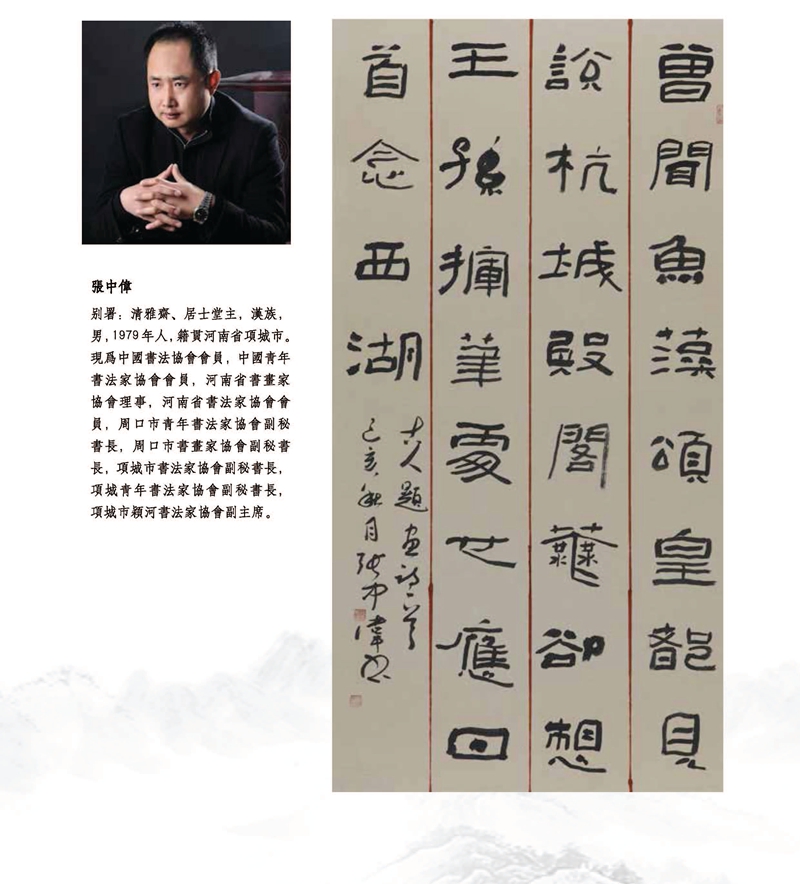 張中偉
别署：清雅齋、居士堂主，漢族，
男，1979年人，籍貫河南省項城市。
現爲中國書法協會會員，中國青年
書法家協會會員，河南省書畫家
協會理事，河南省書法家協會會
員，周口市青年書法家協會副秘
書長，周口市書畫家協會副秘書
長，項城市書法家協會副秘書長，
項城青年書法家協會副秘書長，
項城市穎河書法家協會副主席。
曾聞魚藻頌皇都見
說杭城殿閣蕪卻想
王孫揮筆處也應回
首念西湖
古人題畫詩一首
己亥秋月張中偉書